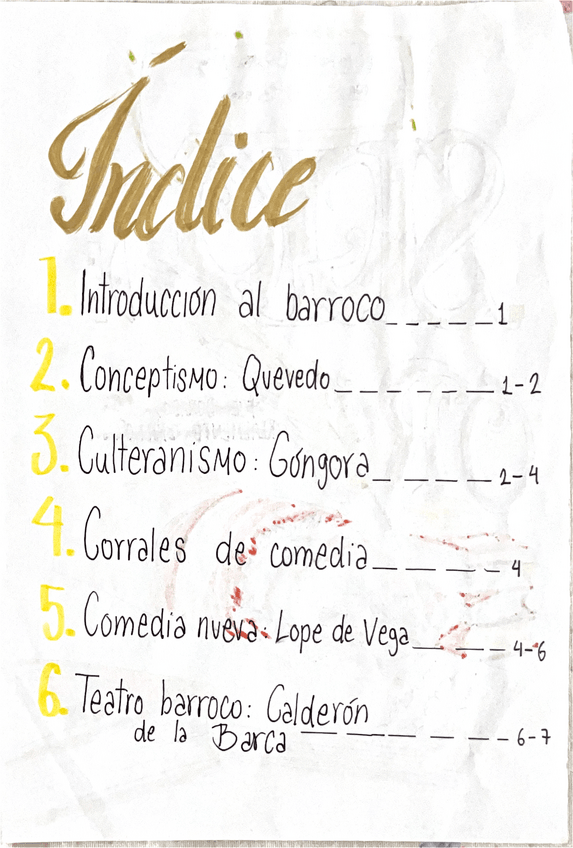 Índice
1. Introducción al barroco_ _ _ _ _1
2. Conceptismo: Quevedo_ _ _ _ _ _ 1-2
3. Culteranismo: Góngora_ _ _ _ 2-4
4. Corrales de comedia_ _ _ _ _ 4
5. Comedia nueva: Lope de Vega_ _ _ _ 4-6
6. Teatro barroco: Calderón
de la Barca _ _ _ _ _ _ _ 6-7